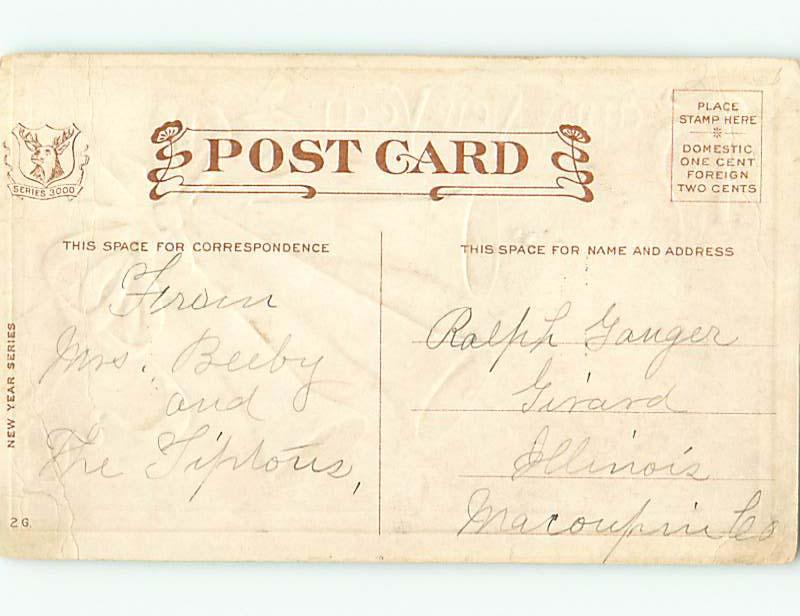 SERIES 3000
POST CARD
PLACE
STAMP HERE
DOMESTIC
ONE CENT
FOREIGN
TWO CENTS
THIS SPACE FOR CORRESPONDENCE
From
Mrs. Beeby
and
The Tiptons,
THIS SPACE FOR NAME AND ADDRESS
Ralph Gauger
Girard
Illinois
Macoupin Co
NEW YEAR SERIES
2 G.